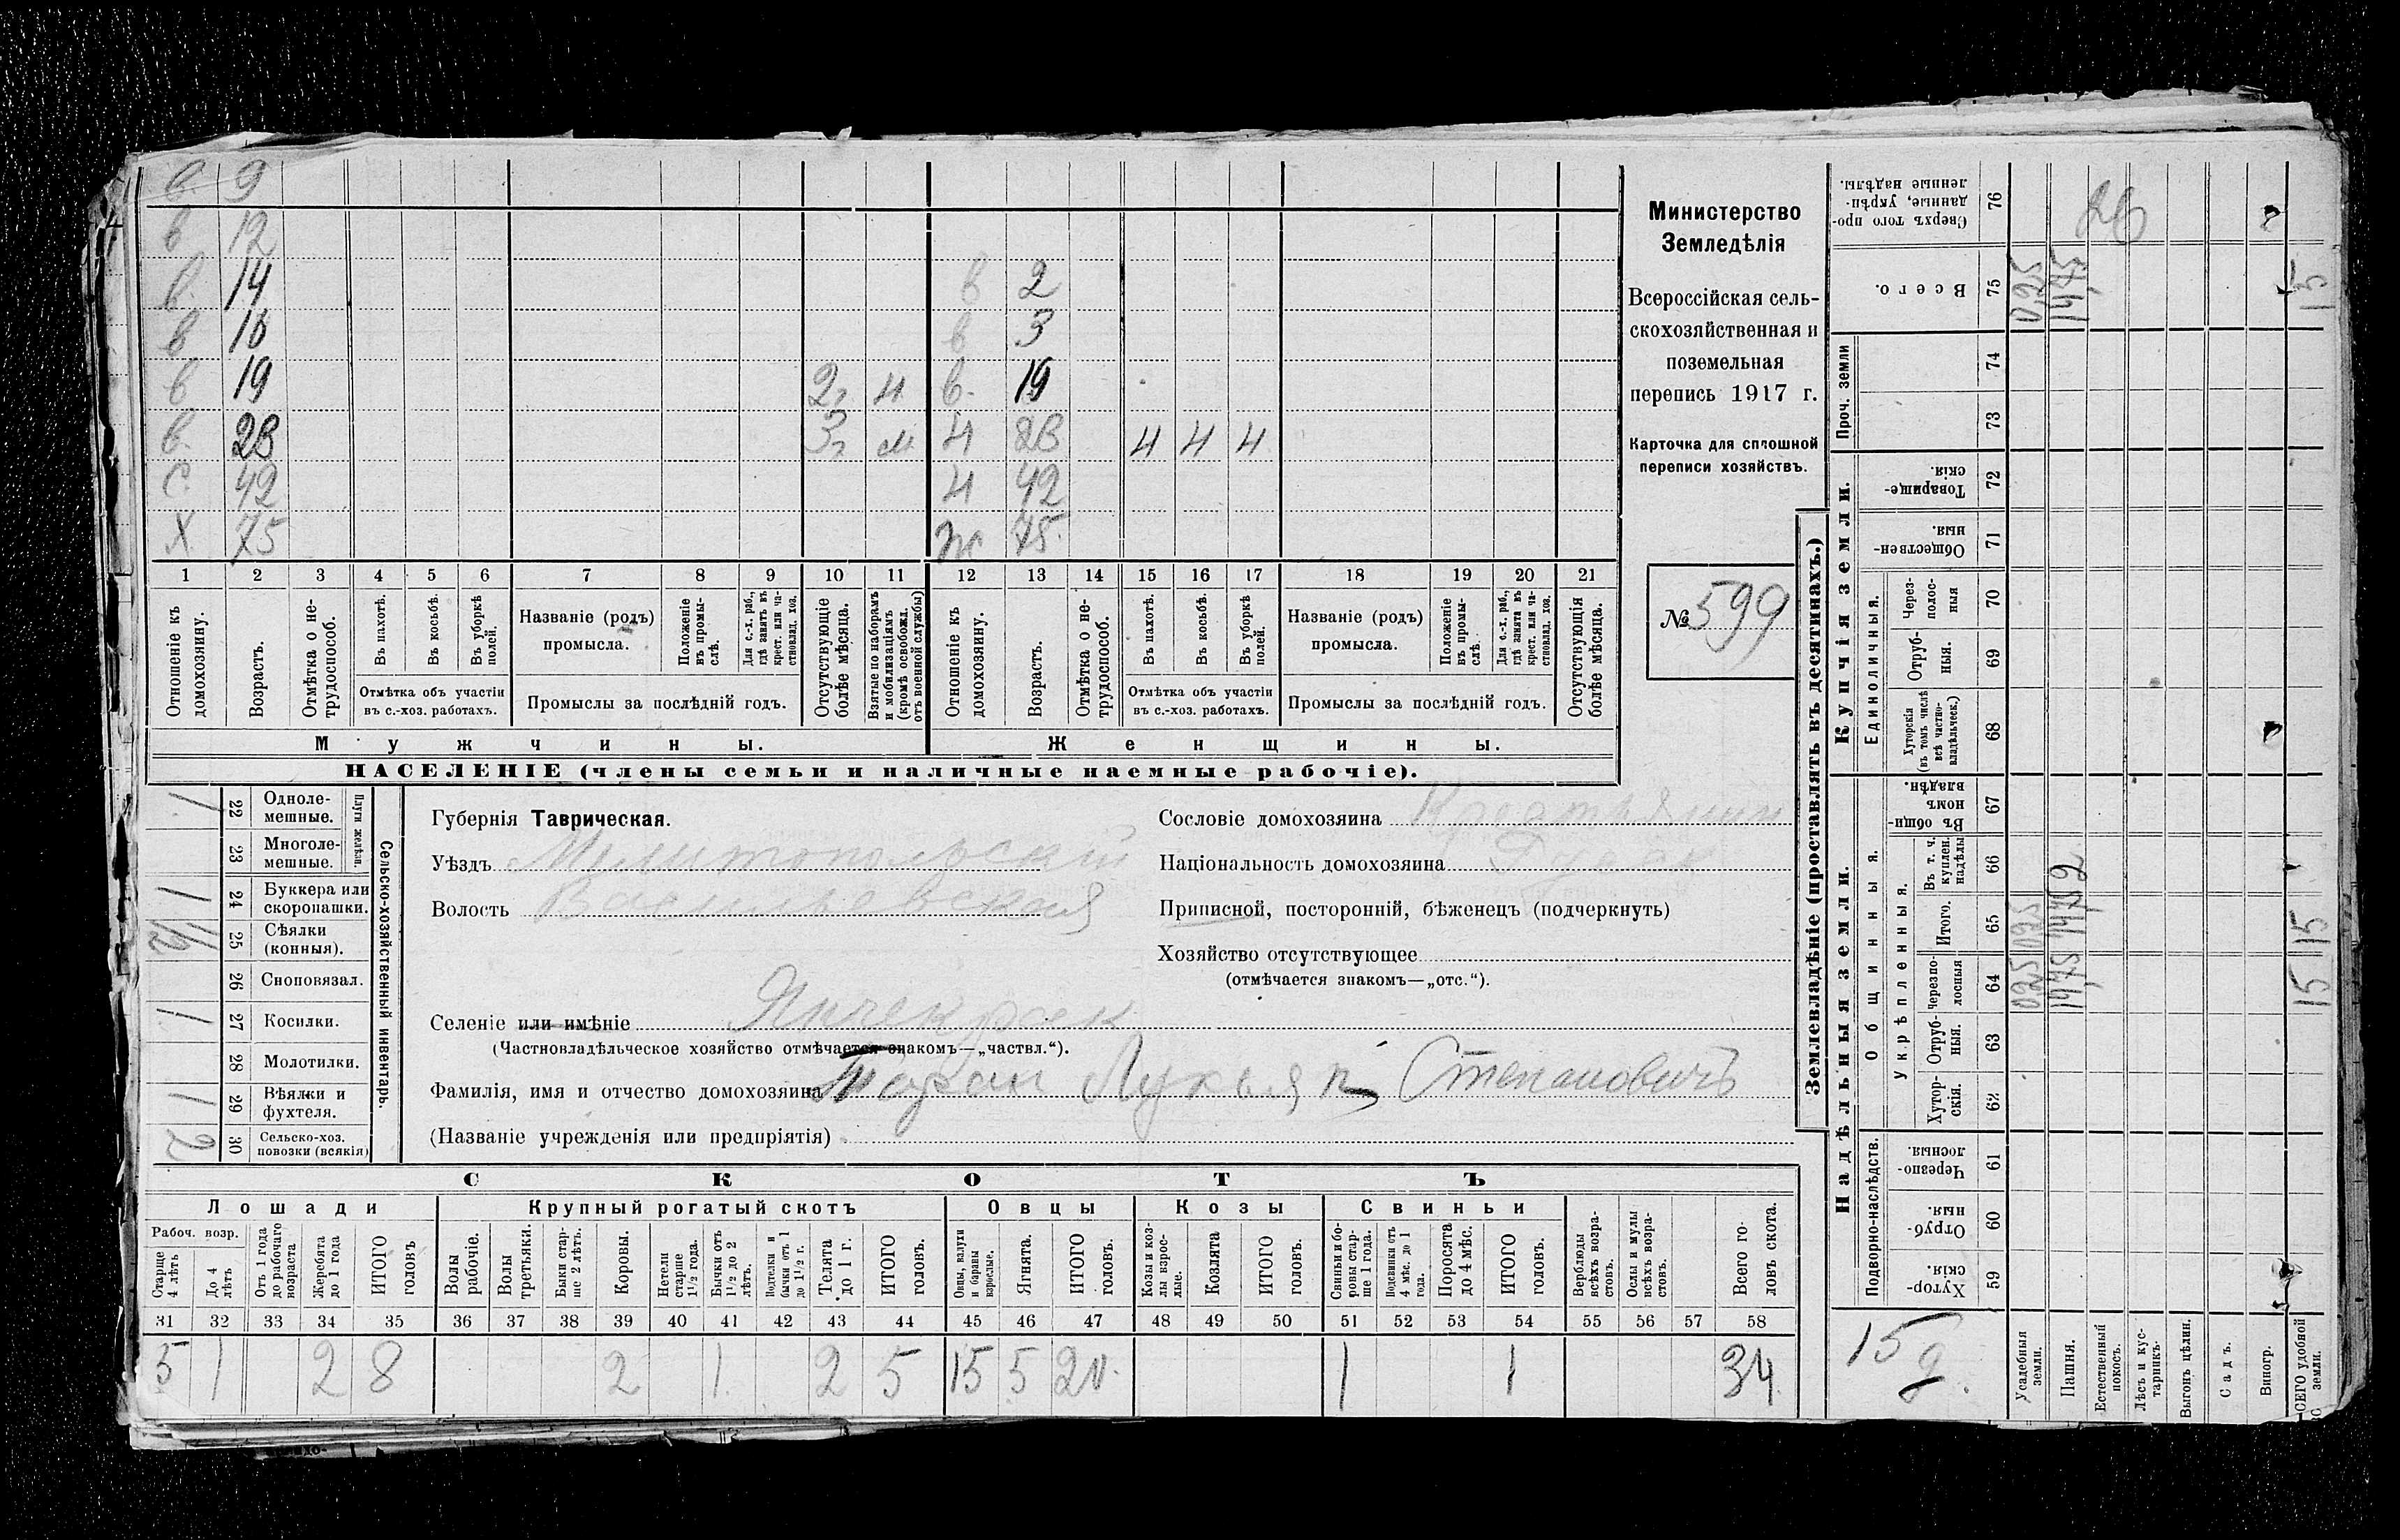 в. 9
в 12
в. 14
в 16
в 19 2 г. н в. 19
в 2
в 3
в. 23 3 г. м. н 23 н н н
С. 42 н 42
Х. 75 ж 75.
1 2 3 4 5 6 7 8 9 10 11 12 13 14 15 16 17 18 19 20 21
Отношеніе къ домохозяину.
Возрастъ.
Отмѣтка о не-трудоспособ.
Въ пахотѣ.
Въ косьбѣ.
Въ уборкѣ полей.
Отмѣтка объ участіи въ с.-хоз. работахъ.
Названіе (родъ) промысла.
Положеніе въ промы-слѣ.
Для с.-х. раб., гдѣ занятъ въ крест. или ча-стновлад. хоз.
Промыслы за послѣдній годъ.
Отсутствующіе болѣе мѣсяца.
Взятые по наборамъ и мобилизаціямъ (кромѣ освобожд. отъ военной службы)
Отношеніе къ домохозяину.
Возрастъ.
Отмѣтка о не-трудоспособ.
Въ пахотѣ.
Въ косьбѣ.
Въ уборкѣ полей.
Отмѣтка объ участіи въ с.-хоз. работахъ.
Названіе (родъ) промысла.
Положеніе въ промы-слѣ.
Для с.-х. раб., гдѣ занята въ крест. или ча-стновлад. хоз.
Промыслы за послѣдній годъ.
Отсутствующія болѣе мѣсяца.
Мужчины.
Женщины.
НАСЕЛЕНІЕ (члены семьи и наличные наемные рабочіе).
Министерство
Земледѣлія
Всероссійская сель-
скохозяйственная и
поземельная
перепись 1917 г.
Карточка для сплошной
переписи хозяйствъ.
№ 599
1 22 Одноле-мешные.
23 Многоле-мешные.
Плуги желѣзн.
1 24 Буккера или скоропашки.
1/2 25 Сѣялки (конныя).
26 Сноповязал.
1 27 Косилки.
28 Молотилки.
1 29 Вѣялки и фухтеля.
2 30 Сельско-хоз. повозки (всякія)
Сельско-хозяйственный инвентарь.
Губернія Таврическая.
Уѣздъ Мелитопольский
Волость Васильевская
Селеніе или имѣніе Янчекрак
(Частновладѣльческое хозяйство отмѣчается знакомъ—„частвл.“).
Фамилія, имя и отчество домохозяина Таран Лукьян Степановичъ
(Названіе учрежденія или предпріятія)
Сословіе домохозяина Крестьянин
Національность домохозяина
Приписной, посторонній, бѣженецъ (подчеркнуть)
Хозяйство отсутствующее
(отмѣчается знакомъ—„отс.“).
СКОТЪ
Лошади
Крупный рогатый скотъ
Овцы
Козы
Свиньи
Рабоч. возр.
Старше 4 лѣтъ
До 4 лѣтъ
Отъ 1 года до рабочаго возраста
Жеребята до 1 года
ИТОГО головъ
Волы рабочіе.
Волы третьяки.
Быки стар-ше 2 лѣтъ.
Коровы.
Нетели старше 1½ года.
Бычки отъ 1½ до 2 лѣтъ.
Подтелки и бычки отъ 1 до 1½ г.
Телята до 1 г.
ИТОГО головъ.
Овцы, валухи и бараны взрослые.
Ягнята.
ИТОГО головъ.
Козы и коз-лы взрос-лые.
Козлята
ИТОГО головъ.
Свиньи и бо-ровы стар-ше 1 года.
Подсвинки отъ 4 мѣс. до 1 года.
Поросята до 4 мѣс.
ИТОГО головъ.
Верблюды всѣхъ возра-стовъ.
Ослы и мулы всѣхъ возра-стовъ.
Всего го-ловъ скота.
31 32 33 34 35 36 37 38 39 40 41 42 43 44 45 46 47 48 49 50 51 52 53 54 55 56 57 58
5 1 2 8 2 1. 2 5 15 5 20. 1 1 34.
Землевладѣніе (проставлять въ десятинахъ.)
Надѣльныя земли.
Купчія земли.
Проч. земли
Подворно-наслѣдств.
Общинныя.
Укрѣпленныя.
Единоличныя.
59 Хутор-скія.
60 Отруб-ныя.
61 Черезпо-лосныя
62 Хутор-скія.
63 Отруб-ныя.
64 Черезпо-лосныя 0,25 14,75 15
65 Итого. 0,25 14,75 15
66 Въ т. ч. куплен. надѣлы 2
67 Въ общи-номъ владѣн.
68 Хуторскія (въ томъ числѣ всѣ частно-владѣльческ.)
69 Отруб-ныя.
70 Через-полос-ныя
71 Обществен-ныя.
72 Товарище-скія.
73
74
75 Всего. 0,25 14,75 15
76 Сверхъ того про-данные, укрѣп-ленные надѣлы. 26
15 д.
Усадебныя земли.
Пашня.
Естественный покосъ.
Лѣсъ и кус-тарникъ.
Выгонъ цѣлин.
Садъ.
Виногр.
ВСЕГО удобной земли.